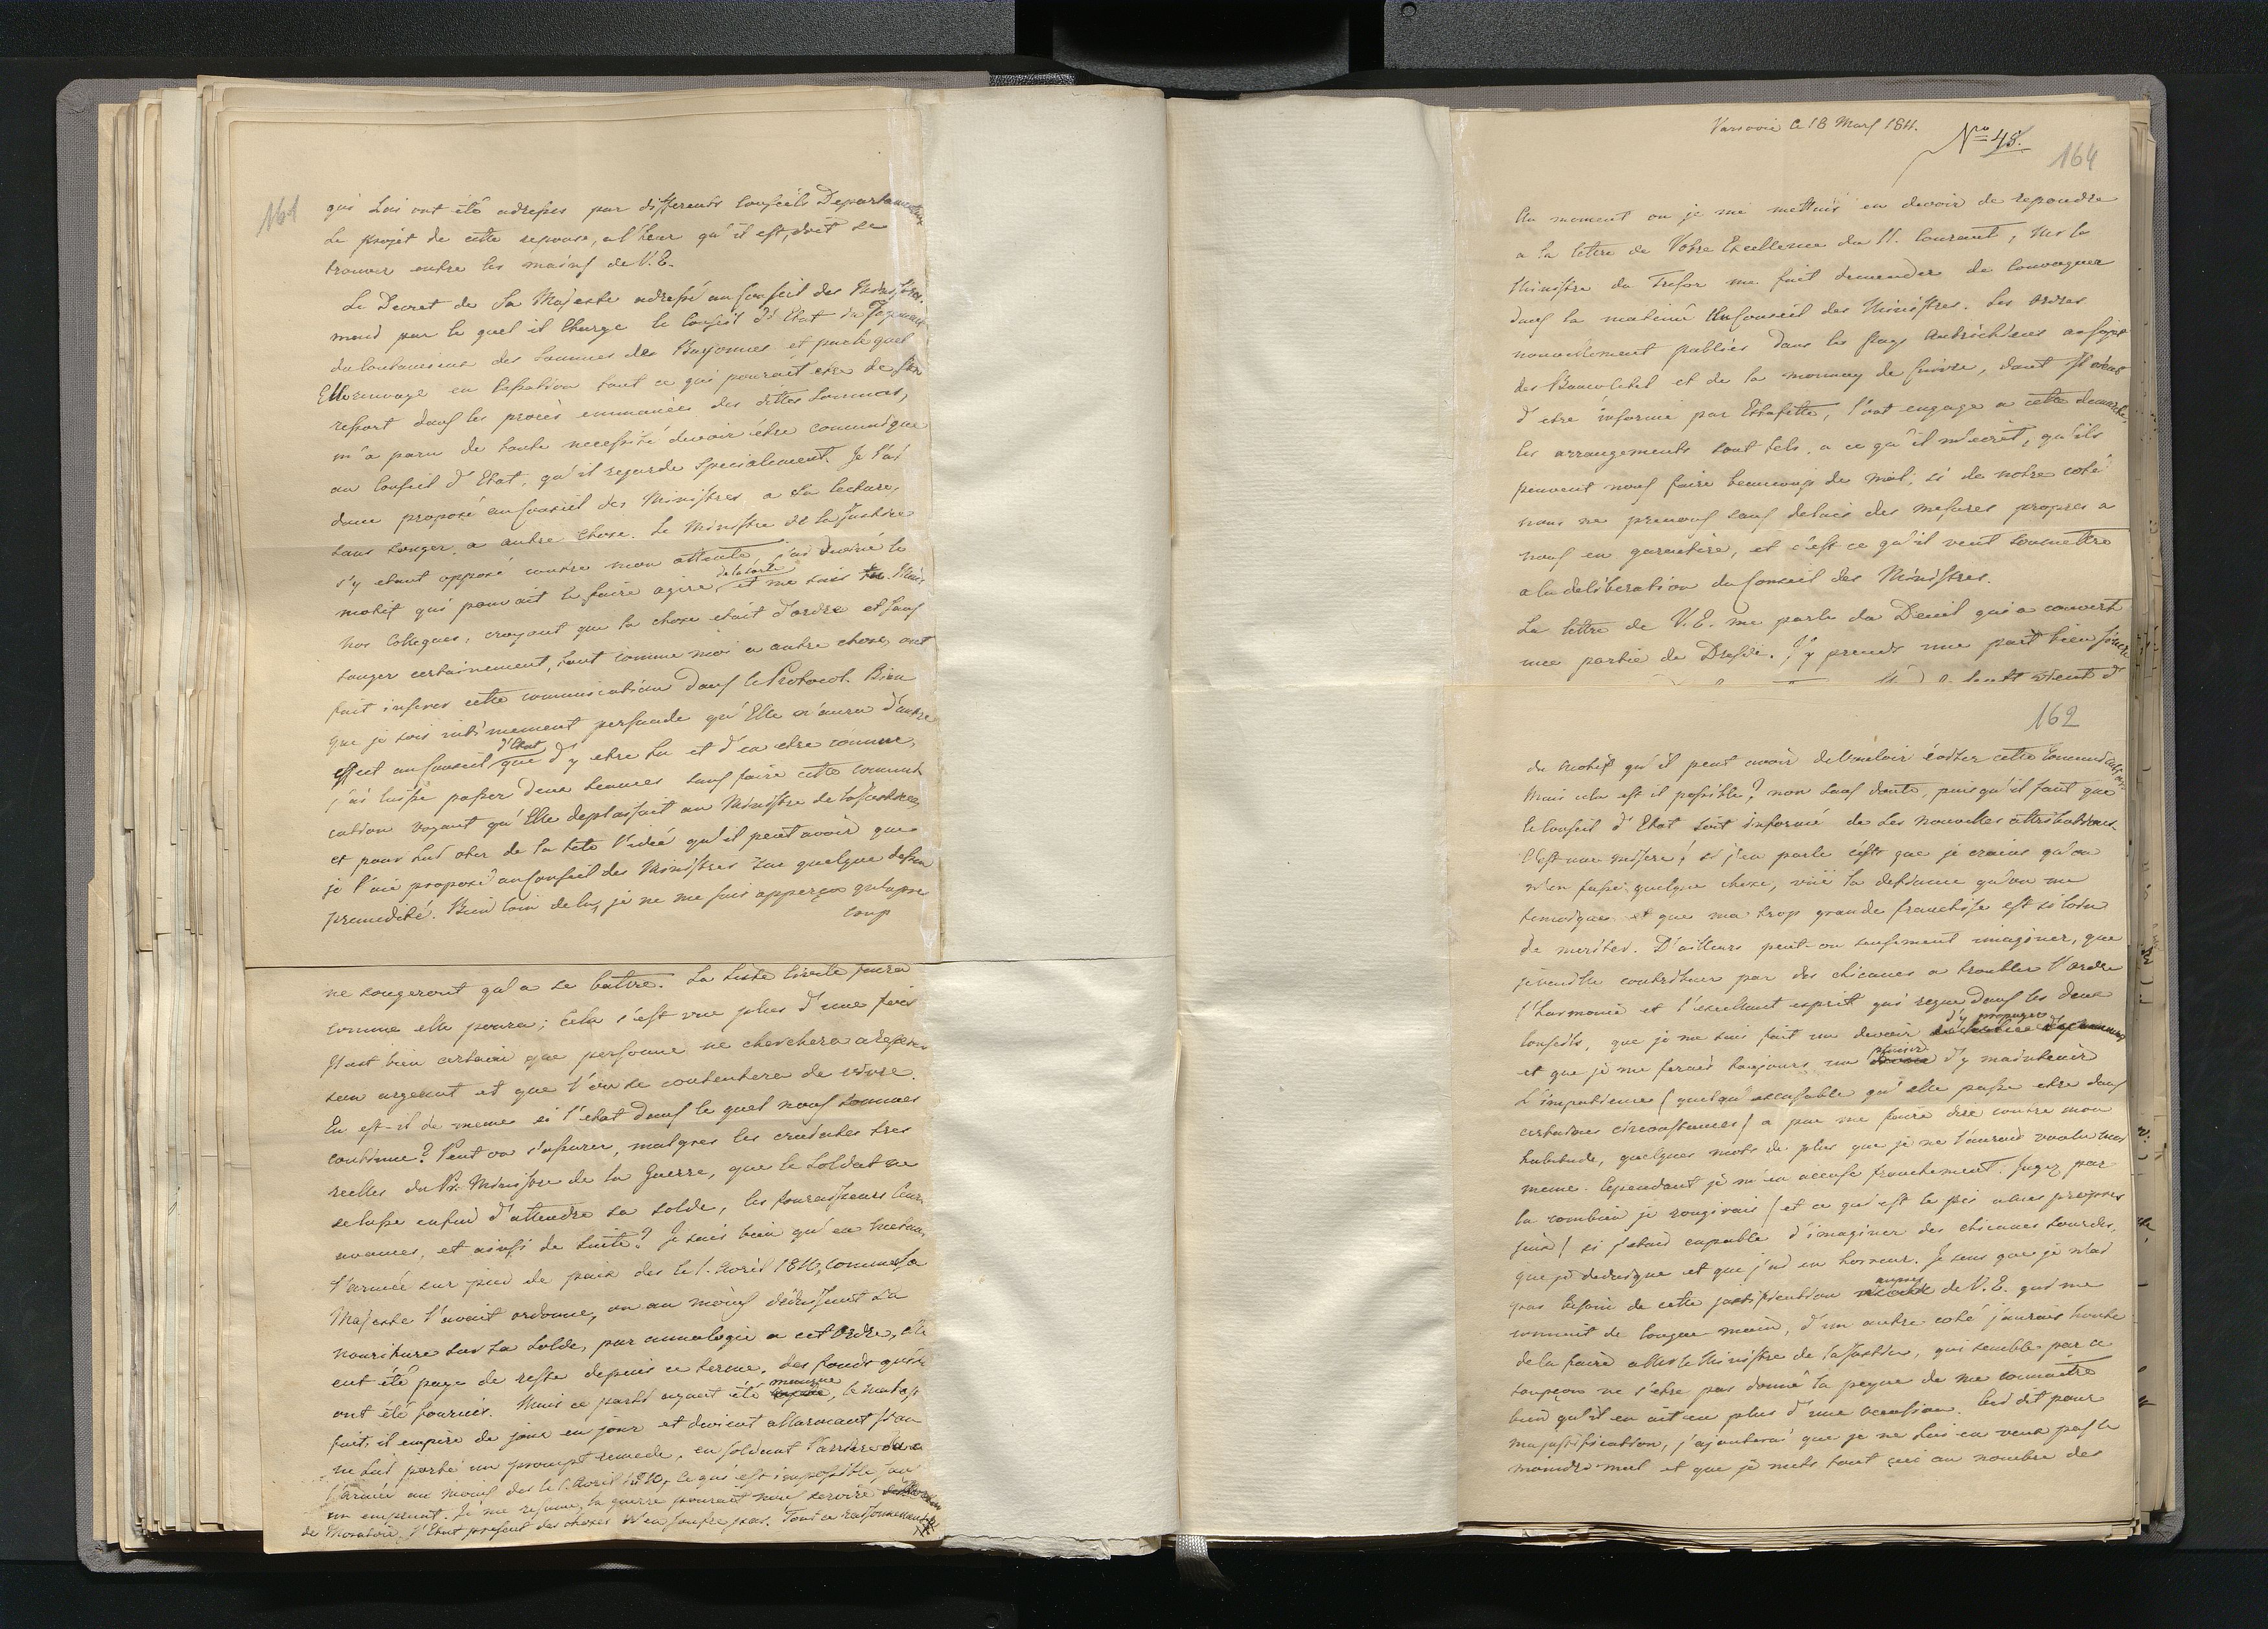 161
qui lui ont été adressés par differents Conseils Departamentaux
Le projet de cette reponse, a l'heur qu'il est, doit se
trouver entre les mains de V. E.
Le Decret de Sa Majesté adressé au Conseil des
mend par le quel il charge le Conseil d'Etat du
du Contencieux des Sommes des Bayonnes et par le quel
Elle renvoye en Cassation tout ce qui pourait etre de son
ressort dans les procès emmanées des dittes Sommes,
m'a paru de toute necessité devoir être comuniqué
au Conseil d'Etat, qu'il regarde specialement. Je l'ai
donc proposé au Conseil des Ministres a la lecture,
sans songer a autre chose. Le Ministre de la Justice
s'y etant opposé contre mon attente, j'ai deviné le
motif qui pouvait le faire agire de la sorte et me suis tu. Mais
nos Collegues, croyant que la chose etait d'ordre et sans
songer certainement, tout comme moi a autre chose, ont
fait inserer cette communication dans le Protocol. Bien
que je sois intimement persuadé qu'Elle n'aura d'autre
effect au Conseil d'Etat que d'y etre lu et d'en etre connue,
j'ai laissé passer deux seances sans faire cette communi
cation voyant qu'Elle deplaisait au Ministre de la Justice,
et pour lui oter de la tete l'idée qu'il peut avoir que
je l'aie proposé au Conseil des Ministres par quelque dessein
premedité. Bien loin de la, je ne me suis apperçu qu'apres
coup
ne songeront qu'a se battre. La Liste Civile
comme elle poura; cela s'est vue plus d'une fois
Il est bien certain que personne ne cherchera
son argent et que l'on se contentera de vivre.
En est-il de meme si l'etat dans le quel nous sommes
continue? Peut on s'assurer, malgres les
reelles du Pr. Ministre de la Guerre, que le Soldat ne
se lasse enfin d'attendre sa solde, les fournisseurs leurs
avances, et ainsi de suite? Je sais bien qu'en
l'armée sur pied de paix des le 1. Avril 1810, comme Sa
Majesté l'avait ordonné, ou au moins
nouriture sur la solde, par annalogie a cet Ordre, elle
eut été payé de reste depuis ce terme, des fonds qui lui
ont été fournis. Mais ce parti ayant été manqué, le mal est
fait, il empire de jour en jour et devient allarmant si on
ne lui porte un prompt remede, en soldant l'arriéré
l'armée au moins des le 1. Avril 1810, ce qui est impossible sans
un emprunt. Je me resume, la guerre pourait nous servire
de Moratoire. L'Etat present des choses n'en souffre pas. Tout ce raisonnement
Varsovie le 18 Mars 1811.
Nro 48.
164
Au moment ou je me mettais en devoir de repondre
a la lettre de Votre Excellence du 11. Courant, Mr le
Ministre du Tresor me fait demander de convoquer
dans la matinée un Conseil des Ministres. Les Ordres
nouvellement publiés dans les Pays Autrichiens au sujet
des Bancozetel et de la monnay de cuivre, dont il vient
d'etre informé par Estafette, l'ont engagé a cette demarche.
Les arrangements sont tels, a ce qu'il m'ecrit, qu'ils
peuvent nous faire beaucoup de mal, si de notre coté
nous ne prenons sans delais des mesures propres a
nous en garentire, et c'est ce qu'il veut soumettre
a la deliberation du Conseil des Ministres.
La lettre de V. E. me parle du Deuil qui a couvert
une partie de Dresde. J'y prends une part bien sincere
162
du motif qu'il peut avoir de vouloir éviter cette Communication
Mais cela est il possible? non sans doute, puis qu'il faut que
le Conseil d'Etat soit informé de ses nouvelles attributions.
C'est une misere! si j'en parle c'est que je crains qu'on
n'en fasse quelque chose, vüe la defiance qu'on me
temoigne et que ma trop grande franchise est si loin
de meriter. D'ailleurs peut-on sensement imaginer, que
je veuille contribuer par des chicanes a troubler l'ordre
l'harmonie et l'excellent esprit qui regne dans les deux
Conseils, que je me suis fait un devoir d'y propager
et que je me ferai toujours un plaisir d'y maintenir
L'impatience (quelqu'excusable qu'elle puisse etre dans
certaines circonstances) a pu me faire dire contre mon
habitude, quelques mots de plus que je ne l'aurais voulu moi
meme. Cependant je m'en accuse franchement. Jugez par
la combien je rougirais (et ce qu'est le pis a mes propres
yeux) si j'etais capable d'imaginer des chicanes sourdes,
que je dedaigne et que j'ai en horreur. Je sens que je n'ai
pas besoin de cette justification aupres de V. E. qui me
connait de longue main, d'un autre coté j'aurais honte
de la faire a Mr le Ministre de la Justice, qui semble par ce
soupçon ne s'etre pas donné la peyne de me connaitre
bien qu'il en ait eu plus d'une occasion. Ceci dit pour
ma justification, j'ajouterai que je ne lui en veux pas le
moindre mal et que je mets tout ceci au nombre des